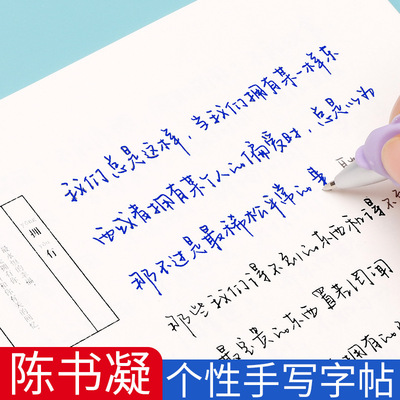 我们总是这样，当我们拥有某一样东
西或者拥有某个人的偏爱时，总是以为
那不过是最稀松平常的
那些我们得不到的东西和得不
的东西置若罔闻
拥有的
陈书凝
个性手写字帖